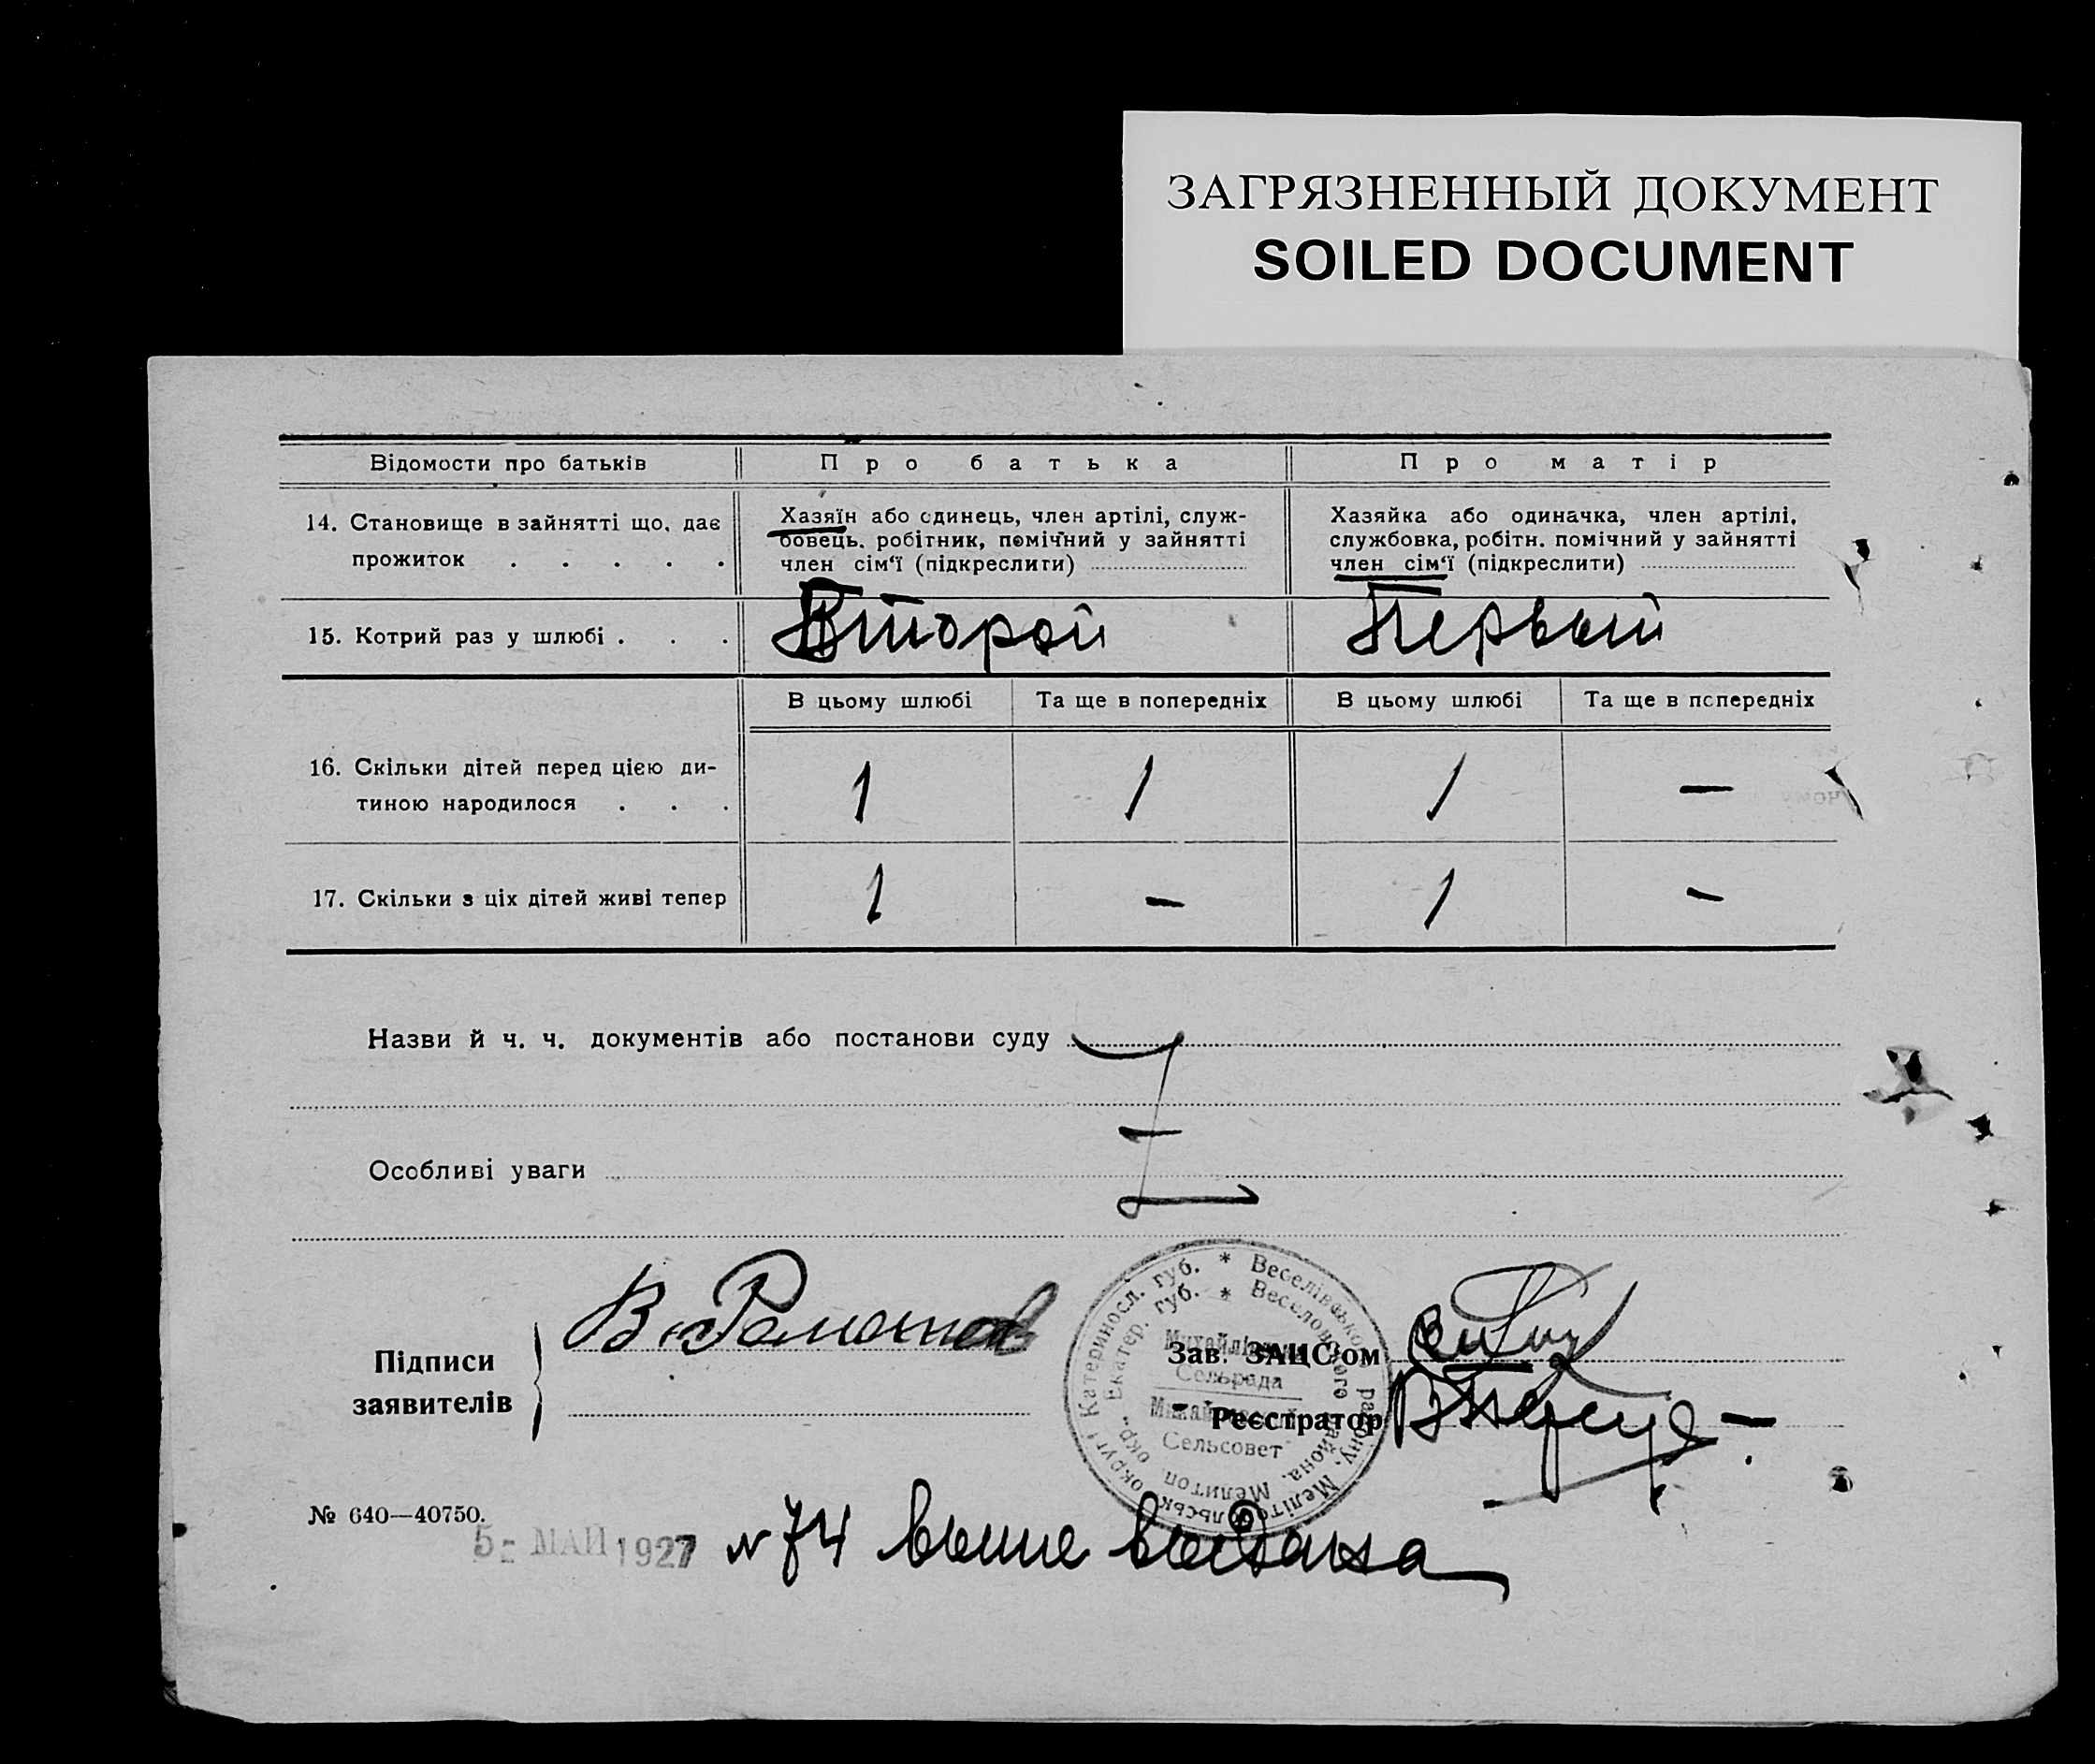 ЗАГРЯЗНЕННЫЙ ДОКУМЕНТ
SOILED DOCUMENT
Відомости про батьків Про батька Про матір
14. Становище в зайнятті що, дає прожиток . . . . .
Хазяїн або одинець, член артілі, служ-
бовець, робітник, помічний у зайнятті
член сім'ї (підкреслити)
Хазяйка або одиначка, член артілі,
службовка, робітн. помічний у зайнятті
член сім'ї (підкреслити)
15. Котрий раз у шлюбі . . . Второй Первый
В цьому шлюбі Та ще в попередніх В цьому шлюбі Та ще в попередніх
16. Скільки дітей перед цією ди-
тиною народилося . . . 1 1 1 —
17. Скільки з ціх дітей живі тепер 1 — 1 —
Назви й ч. ч. документів або постанови суду
Особливі уваги
Підписи
заявителів
Зав. ЗАЦС'ом
Реєстратор
Катериносл. губ. * Веселівського району, Мелітопільськ округи
Екатер. губ. * Веселовского района, Мелитоп. окр.
Сельрада
Сельсовет
№ 640—40750.
5- МАЙ 1927 № 74 выше выдана